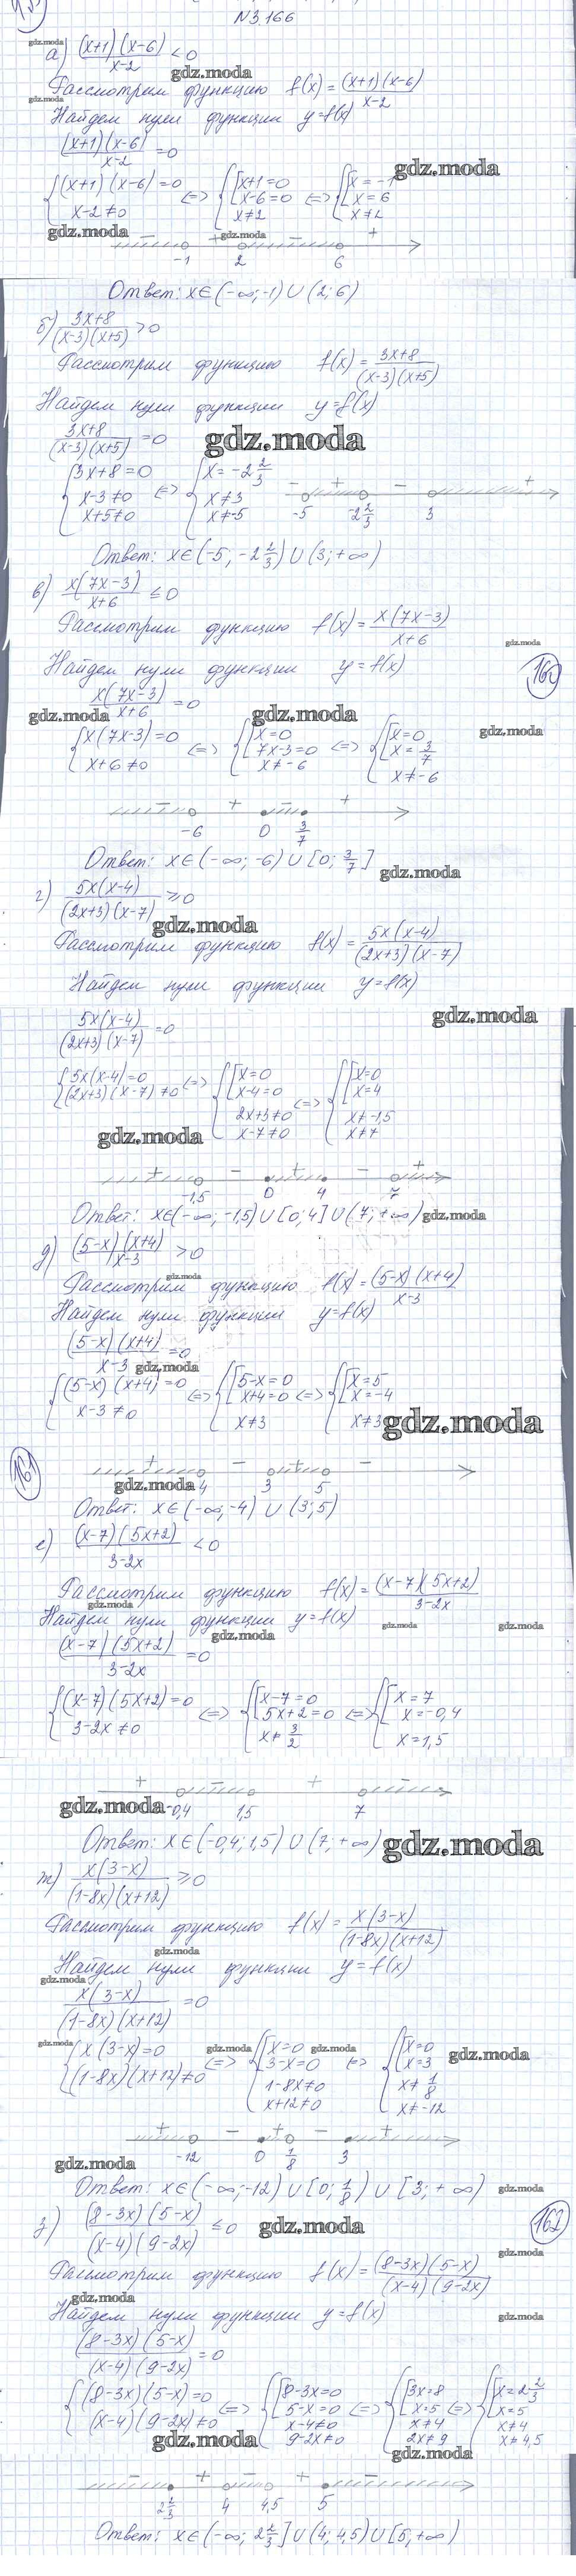 N3.166
а) (x+1)(x-6)/x-2 < 0
Рассмотрим функцию f(x) = (x+1)(x-6)/x-2
Найдем нули функции y=f(x)
(x+1)(x-6)/x-2 = 0
{(x+1)(x-6)=0 x-2≠0 <=> {[x+1=0 x-6=0 x≠2 <=> {[x=-1 x=6 x≠2
- + - +
-1 2 6
Ответ: x∈(-∞;-1)∪(2;6)
б) 3x+8/(x-3)(x+5) > 0
Рассмотрим функцию f(x) = 3x+8/(x-3)(x+5)
Найдем нули функции y=f(x)
3x+8/(x-3)(x+5) = 0
gdz.moda
{3x+8=0 x-3≠0 x+5≠0 <=> {x=-2 2/3 x≠3 x≠-5
- + - +
-5 -2 2/3 3
Ответ: x∈(-5; -2 2/3)∪(3;+∞)
в) x(7x-3)/x+6 ≤ 0
Рассмотрим функцию f(x) = x(7x-3)/x+6
gdz.moda
Найдем нули функции y=f(x)
160
x(7x-3)/x+6 = 0
gdz.moda gdz.moda gdz.moda
{x(7x-3)=0 x+6≠0 <=> {[x=0 7x-3=0 x≠-6 <=> {[x=0 x=3/7 x≠-6
- + - +
-6 0 3/7
Ответ: x∈(-∞;-6)∪[0; 3/7]
gdz.moda
г) 5x(x-4)/(2x+3)(x-7) ≥ 0
gdz.moda
Рассмотрим функцию f(x) = 5x(x-4)/(2x+3)(x-7)
Найдем нули функции y=f(x)
5x(x-4)/(2x+3)(x-7) = 0
gdz.moda
{5x(x-4)=0 (2x+3)(x-7)≠0 <=> {[x=0 x-4=0 2x+3≠0 x-7≠0 <=> {[x=0 x=4 x≠-1,5 x≠7
gdz.moda
+ - + - +
-1,5 0 4 7
Ответ: x∈(-∞;-1,5)∪[0;4]∪(7;+∞)
gdz.moda
д) (5-x)(x+4)/x-3 > 0
Рассмотрим функцию f(x) = (5-x)(x+4)/x-3
Найдем нули функции y=f(x)
(5-x)(x+4)/x-3 = 0
gdz.moda
{(5-x)(x+4)=0 x-3≠0 <=> {[5-x=0 x+4=0 x≠3 <=> {[x=5 x=-4 x≠3
gdz.moda
161
+ - + -
-4 3 5
gdz.moda
Ответ: x∈(-∞;-4)∪(3;5)
е) (x-7)(5x+2)/3-2x < 0
Рассмотрим функцию f(x) = (x-7)(5x+2)/3-2x
Найдем нули функции y=f(x)
(x-7)(5x+2)/3-2x = 0
gdz.moda gdz.moda gdz.moda
{(x-7)(5x+2)=0 3-2x≠0 <=> {[x-7=0 5x+2=0 x≠3/2 <=> {[x=7 x=-0,4 x=1,5
+ - + -
-0,4 1,5 7
gdz.moda
Ответ: x∈(-0,4;1,5)∪(7;+∞)
gdz.moda
ж) x(3-x)/(1-8x)(x+12) ≥ 0
Рассмотрим функцию f(x) = x(3-x)/(1-8x)(x+12)
gdz.moda
Найдем нули функции y=f(x)
gdz.moda
x(3-x)/(1-8x)(x+12) = 0
gdz.moda gdz.moda gdz.moda gdz.moda
{x(3-x)=0 (1-8x)(x+12)≠0 <=> {[x=0 3-x=0 1-8x≠0 x+12≠0 <=> {[x=0 x=3 x≠1/8 x≠-12
+ - + - +
-12 0 1/8 3
gdz.moda
Ответ: x∈(-∞;-12)∪[0; 1/8)∪[3;+∞)
gdz.moda
з) (8-3x)(5-x)/(x-4)(9-2x) ≤ 0
gdz.moda
162
Рассмотрим функцию f(x) = (8-3x)(5-x)/(x-4)(9-2x)
gdz.moda
gdz.moda
Найдем нули функции y=f(x)
gdz.moda
(8-3x)(5-x)/(x-4)(9-2x) = 0
{(8-3x)(5-x)=0 (x-4)(9-2x)≠0 <=> {[8-3x=0 5-x=0 x-4≠0 9-2x≠0 <=> {[3x=8 x=5 x≠4 2x≠9 <=> {[x=2 2/3 x=5 x≠4 x≠4,5
gdz.moda gdz.moda
- + - + -
2 2/3 4 4,5 5
Ответ: x∈(-∞; 2 2/3]∪(4;4,5)∪[5,+∞)